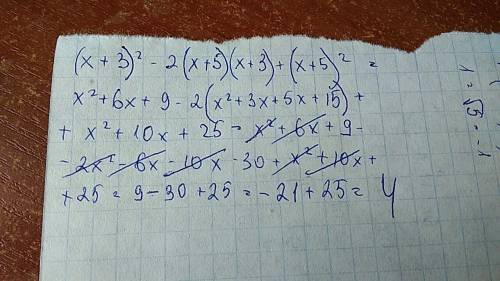 (x + 3)² - 2(x+5)(x+3) + (x+5)² =
x² + 6x + 9 - 2(x² + 3x + 5x + 15) +
+ x² + 10x + 25 = x² + 6x + 9 -
- 2x² - 6x - 10x - 30 + x² + 10x +
+ 25 = 9 - 30 + 25 = - 21 + 25 = 4